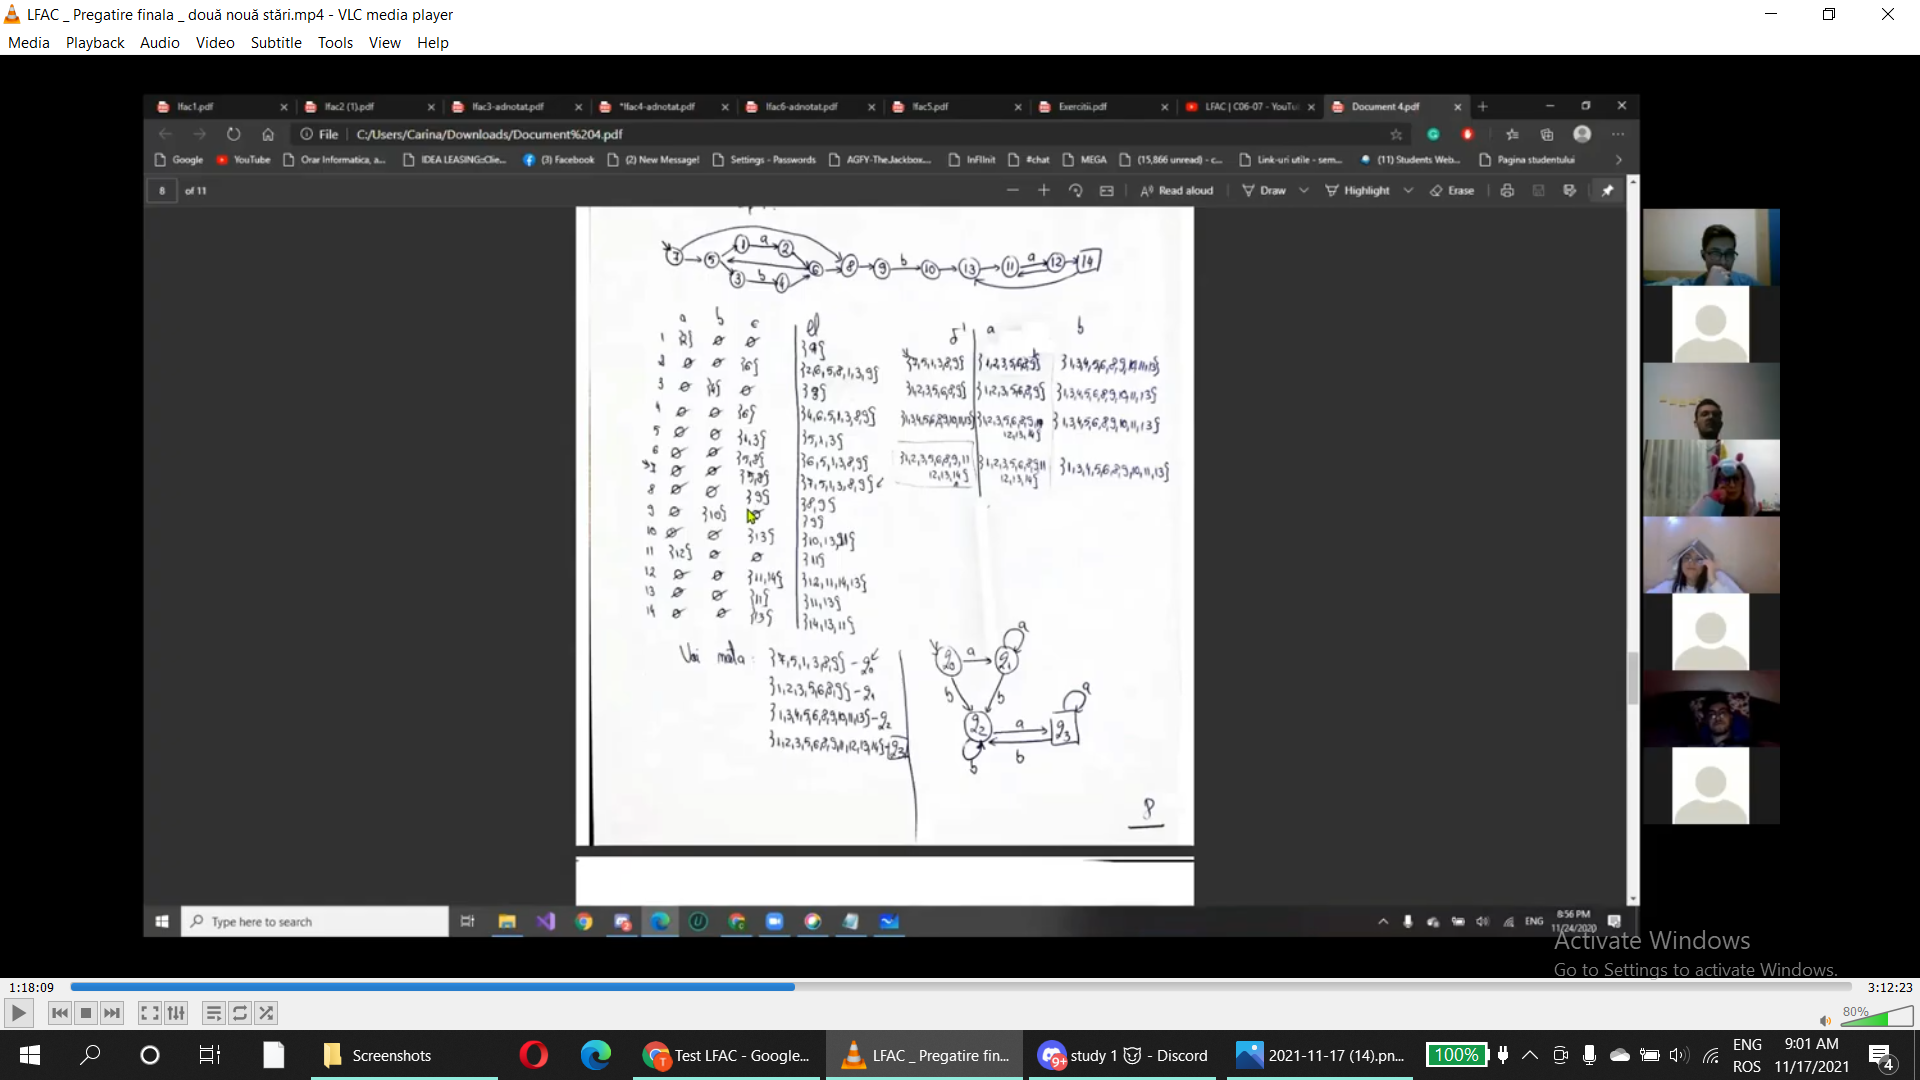 LFAC _ Pregatire finala _ două nouă stări.mp4 - VLC media player
Media Playback Audio Video Subtitle Tools View Help
lfac1.pdf lfac2 (1).pdf lfac3-adnotat.pdf *lfac4-adnotat.pdf lfac6-adnotat.pdf lfac5.pdf Exercitii.pdf LFAC | C06-07 - YouTu Document 4.pdf
File C:/Users/Carina/Downloads/Document%204.pdf
Google YouTube Orar Informatica, a... IDEA LEASING::Clie... (3) Facebook (2) New Message! Settings - Passwords AGFY-The.Jackbox... InFIInit #chat MEGA (15,866 unread) - c... Link-uri utile - sem... (11) Students Web... Pagina studentului
8 of 11 Read aloud Draw Highlight Erase
7 5 1 a 2 3 b 4 6 8 9 b 10 13 11 a 12 14
a b ε el
δ' a b
1 {2} ∅ ∅
2 ∅ ∅ {6} {2,6,5,8,1,3,9}
3 ∅ {4} ∅
4 ∅ ∅ {6} {4,6,5,1,3,8,9}
5 ∅ ∅ {1,3} {5,1,3}
6 ∅ ∅ {5,8} {6,5,1,3,8,9}
7 ∅ ∅ {5,8} {7,5,1,3,8,9}
8 ∅ ∅ {9} {8,9}
9 ∅ {10} ∅ {9}
10 ∅ ∅ {13} {10,13,11}
11 {12} ∅ ∅ {11}
12 ∅ ∅ {11,14} {12,11,14,13}
13 ∅ ∅ {11} {11,13}
14 ∅ ∅ {13} {14,13,11}
{7,5,1,3,8,9} {1,2,3,5,6,8,9} {1,3,4,5,6,8,9,10,11,13}
{1,2,3,5,6,8,9} {1,2,3,5,6,8,9} {1,3,4,5,6,8,9,10,11,13}
{1,3,4,5,6,8,9,10,11,13} {1,3,4,5,6,8,9,10,11,13}
12,13,14}
{1,2,3,5,6,8,9,11 {1,2,3,5,6,8,9,11 {1,3,4,5,6,8,9,10,11,13}
12,13,14} 12,13,14}
{7,5,1,3,8,9} - q0
{1,2,3,5,6,8,9} - q1
{1,3,4,5,6,8,9,10,11,13} - q2
{1,2,3,5,6,8,9,11,12,13,14} - q3
q0 a q1 a
b b
q2 a q3 a
b b
8
Type here to search
ENG
8:56 PM
11/24/2020
Activate Windows
Go to Settings to activate Windows.
1:18:09 3:12:23
80%
Screenshots Test LFAC - Google... LFAC _ Pregatire fin... study 1 - Discord 2021-11-17 (14).pn... 100% ENG 9:01 AM
ROS 11/17/2021 4